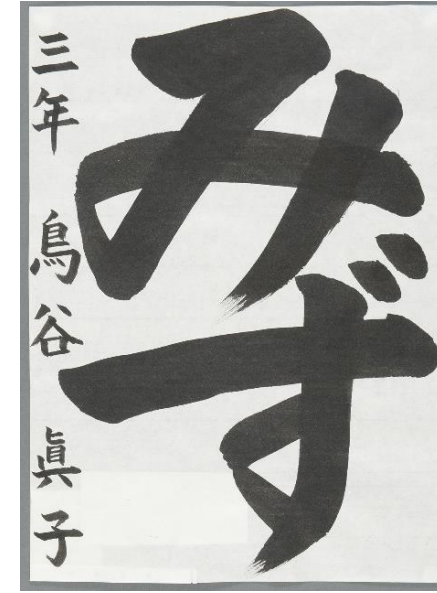 みず
三年 鳥谷 眞子